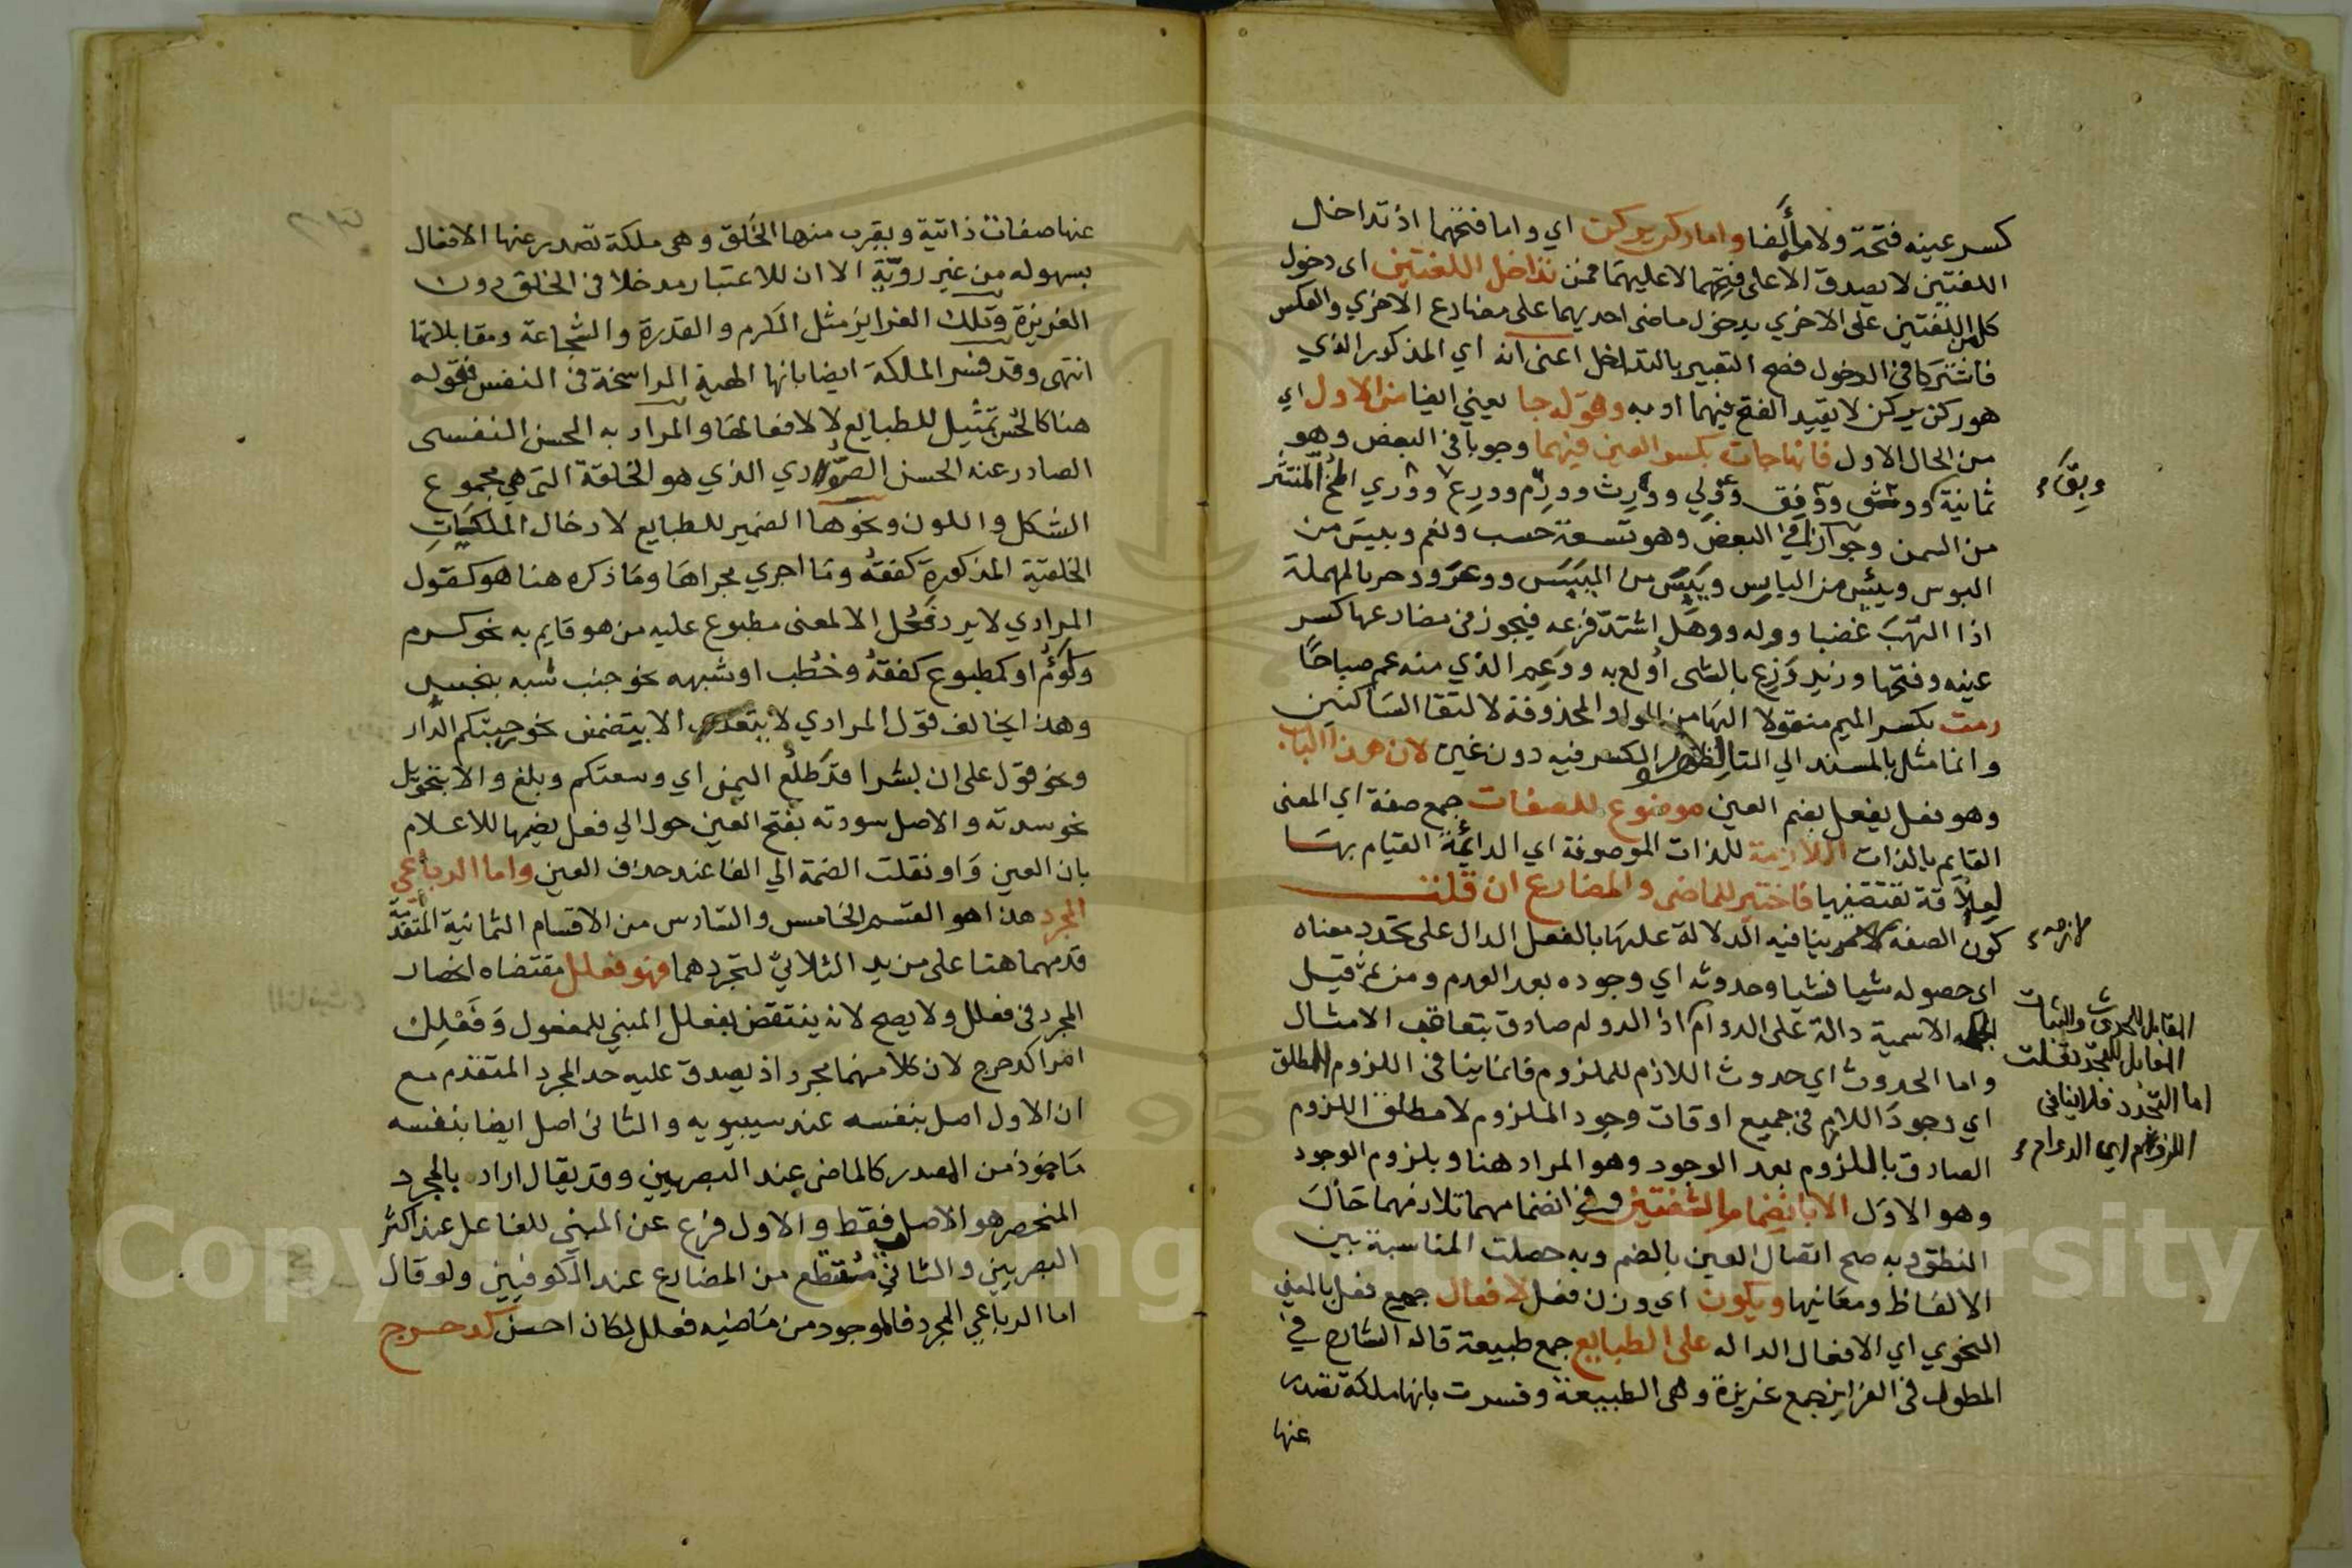 كسر عينه فتحة ولامه ألفا واما ركن يركن اي واما فتحهما اذ تداخل
اللغتين لا يصدق الا على فتحهما لا عليهما فمن تداخل اللغتين اى دخول
كل من اللغتين على الاخري بدخول ماضى احديهما على مضارع الاخري والعكس
فاشتركا في الدخول فصح التعبير بالتداخل اعنى انه اي المذكور الذي
هو ركن يركن لا بقيد الفتح فيهما او به وقوله جا يعني ايضا من الاول اي
من الحال الاول فانها جات بكسر العين فيهما وجوبا في البعض وهو
ثمانية ووثق وومق ووفق وولي وورث وورم وورع ووري المخ المنتثر
من السمن وجوازا في البعض وهو تسعة حسب ونعم وبيس من
البوس ويئس من اليايس ويبس من اليبس ووغر ووحر بالمهملة
اذا التهب غضبا ووله ووهل اشتد فزعه فيجوز في مضارعها كسر
عينه وفتحها وزيد وزع بالشى اولع به ووعم الذي منه عم صباحا
رمت بكسر الميم منقولا اليها من الواو المحذوفة لالتقا الساكنين
وانما مثل بالمسند الي التا لظهور الكسر فيه دون غيره لان هذا الباب
وهو فعل يفعل بضم العين موضوع للصفات جمع صفة اي المعنى
القايم بالذات اللازمة للذات الموصوفة اي الدائمة القيام بها
لعلاقة تقتضيها فاختير للماضى والمضارع ان قلت
كون الصفة لازمة ينافيه الدلالة عليها بالفعل الدال على تجدد معناه
اى حصوله شيا فشيا وحدوثه اي وجوده بعد العدم ومن ثم قيل
الجملة الاسمية دالة على الدوام اذا الدوام صادق بتعاقب الامثال
واما الحدوث اي حدوث اللازم للملزوم فانما ينافى اللزوم المطلق
اي وجود اللازم في جميع اوقات وجود الملزوم لا مطلق اللزوم
الصادق باللزوم بعد الوجود وهو المراد هنا وبلزوم الوجود
وهو الاول الا بانضمام الشفتين وفي انضمامهما تلازمهما حال
النطق وبه صح اتصال العين بالضم وبه حصلت المناسبة بين
الالفاظ ومعانيها ويكون اي وزن فعل لافعال جمع فعل بالمعني
النحوي اي الافعال الداله على الطبايع جمع طبيعة قاله الشارح في
المطول في الغرايز جمع غريزة وهى الطبيعة وفسرت بانها ملكة تصدر
عنها
المقابل للحدوث والثبات
المقابل للتجدد قلت
اما التجدد فلا ينافى
اللزوم اي الدوام
عنها صفات ذاتية ويقرب منها الخلق وهى ملكة تصدر عنها الافعال
بسهوله من غير روية الا ان للاعتبار مدخلا في الخلق دون
الغريزة وتلك الغرايز مثل الكرم والقدرة والشجاعة ومقابلاتها
انتهى وقد فسر الملكة ايضا بانها الهيئة الراسخة فى النفس فقوله
هنا كالحسن تمثيل للطبايع لا لافعالها والمراد به الحسن النفسى
الصادر عنه الحسن الصوري الذي هو الخلقة التي هي مجموع
الشكل واللون ونحوها الضمير للطبايع لادخال الملكات
الخلقية المذكورة كفقه وما اجري مجراها وما ذكره هنا هو كقول
المرادي لا يرد فعل الا لمعنى مطبوع عليه من هو قايم به نحو كرم
ولؤم او كمطبوع كفقه وخطب او شبهه نحو جنب شبه بنجس
وهذا يخالف قول المرادي لا يتعدى الا بتضمن نحو رحبتكم الدار
ونحو قول على ان بشرا قد طلع اليمن اي وسعتكم وبلغ والا بتحويل
نحو سدته والاصل سودته بفتح العين حول الي فعل بضمها للاعلام
بان العين واو نقلت الضمة الي الفا عند حذف العين واما الرباعي
المجرد هذا هو القسم الخامس والسادس من الاقسام الثمانية المتقدمة
قدمهما هنا على مزيد الثلاثي لتجردهما فهو فعلل مقتضاه انحصار
المجرد في فعلل ولا يصح لانه ينتقض بفعلل المبني للمفعول وفعلل
امرا كدحرج لان كلا منهما مجرد اذ يصدق عليه حد المجرد المتقدم مع
ان الاول اصل بنفسه عند سيبويه والثانى اصل ايضا بنفسه
ماخوذ من المصدر كالماضى عند البصريين وقد يقال اراد بالمجرد
المنحصر هو الاصل فقط والاول فرع عن المبني للفاعل عند اكثر
البصريين والثاني مقتطع من المضارع عند الكوفيين ولو قال
اما الرباعي المجرد فالموجود من ماضيه فعلل لكان احسن كدحرج
Copyright © King Saud University